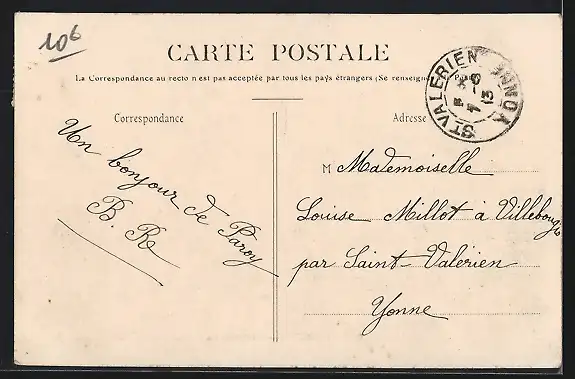 10 6
CARTE POSTALE
La Correspondance au recto n'est pas acceptée par tous les pays étrangers (Se renseigner
ST VALERIEN YONNE
13
Correspondance
Adresse
Un bonjour de Paroy
B. R
M Mademoiselle
Louise Millot à Villebougis
par Saint-Valérien
Yonne